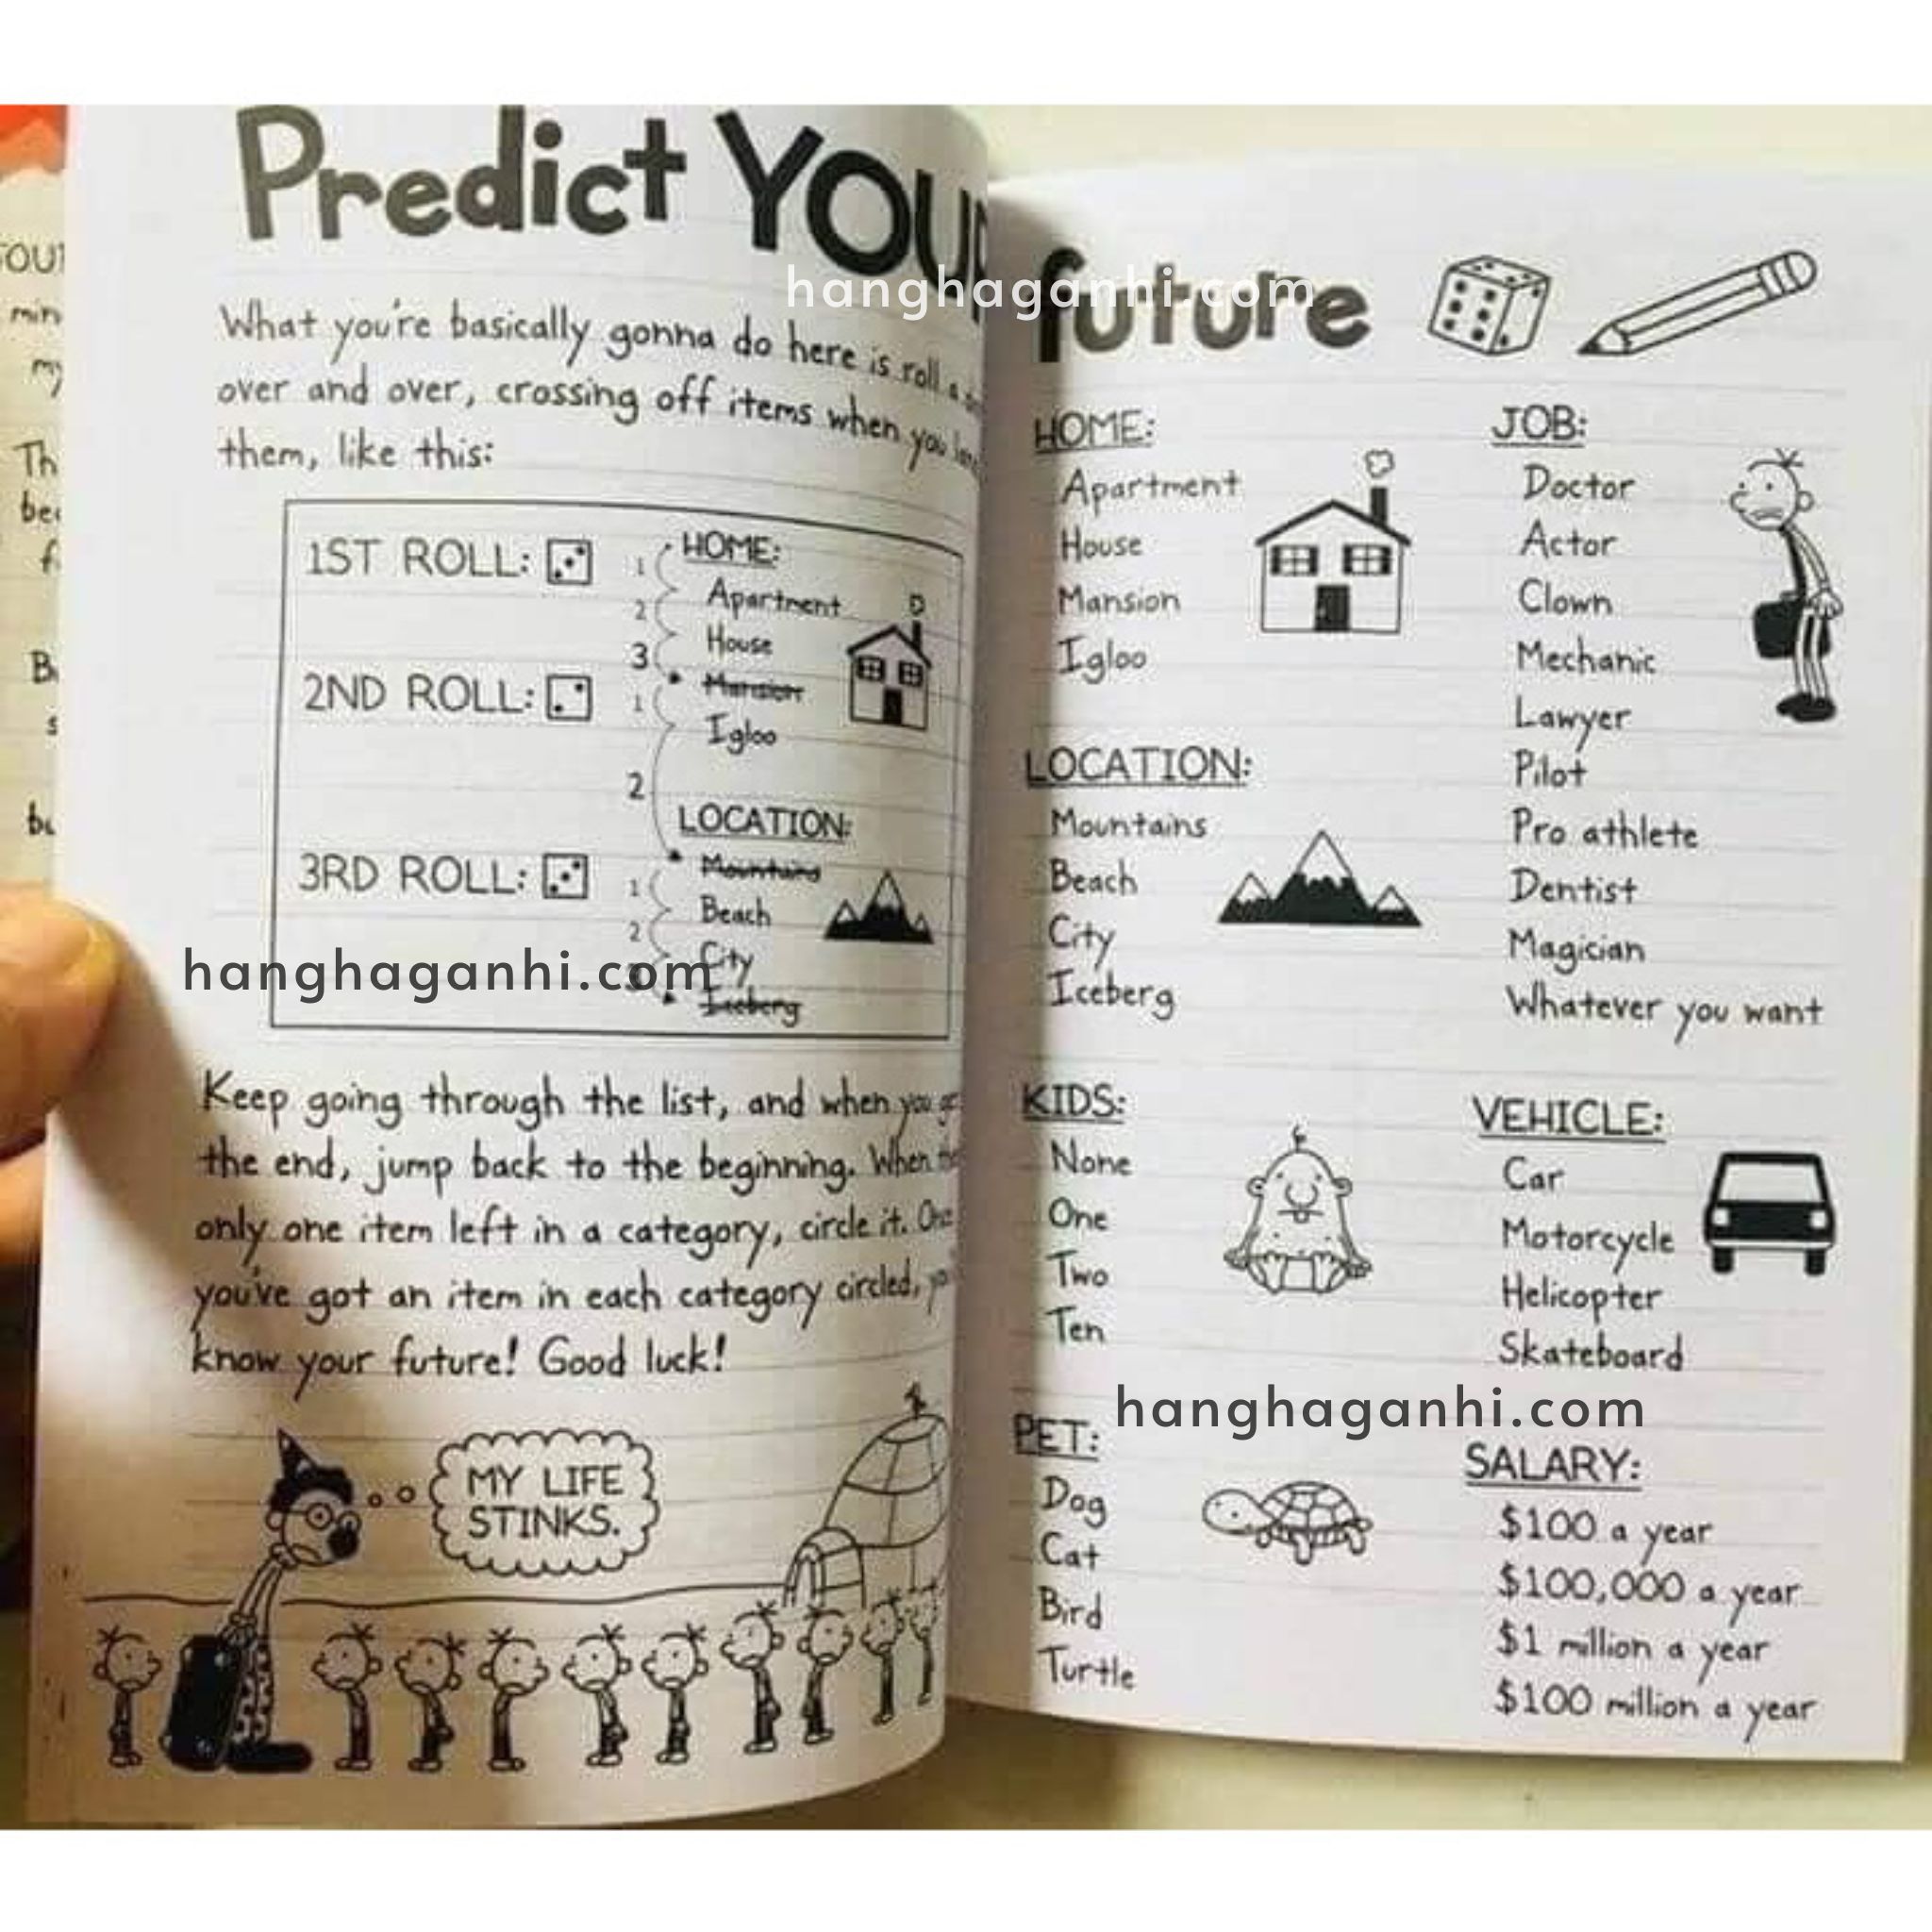 Predict YOUR
What you're basically gonna do here is roll a
over and over, crossing off items when you
them, like this:
1ST ROLL:
2ND ROLL:
3RD ROLL:
1
2
3
1
2
1
2
HOME:
Apartment
House
Mansion
Igloo
LOCATION:
Mountains
Beach
City
Iceberg
hanghaganhi.com
Keep going through the list, and when you
the end, jump back to the beginning. When
only one item left in a category, circle it. Once
you've got an item in each category circled,
know your future! Good luck!
MY LIFE
STINKS.
future
hanghaganhi.com
HOME:
Apartment
House
Mansion
Igloo
LOCATION:
Mountains
Beach
City
Iceberg
KIDS:
None
One
Two
Ten
PET:
Dog
Cat
Bird
Turtle
JOB:
Doctor
Actor
Clown
Mechanic
Lawyer
Pilot
Pro athlete
Dentist
Magician
Whatever you want
VEHICLE:
Car
Motorcycle
Helicopter
Skateboard
hanghaganhi.com
SALARY:
$100 a year
$100,000 a year
$1 million a year
$100 million a year